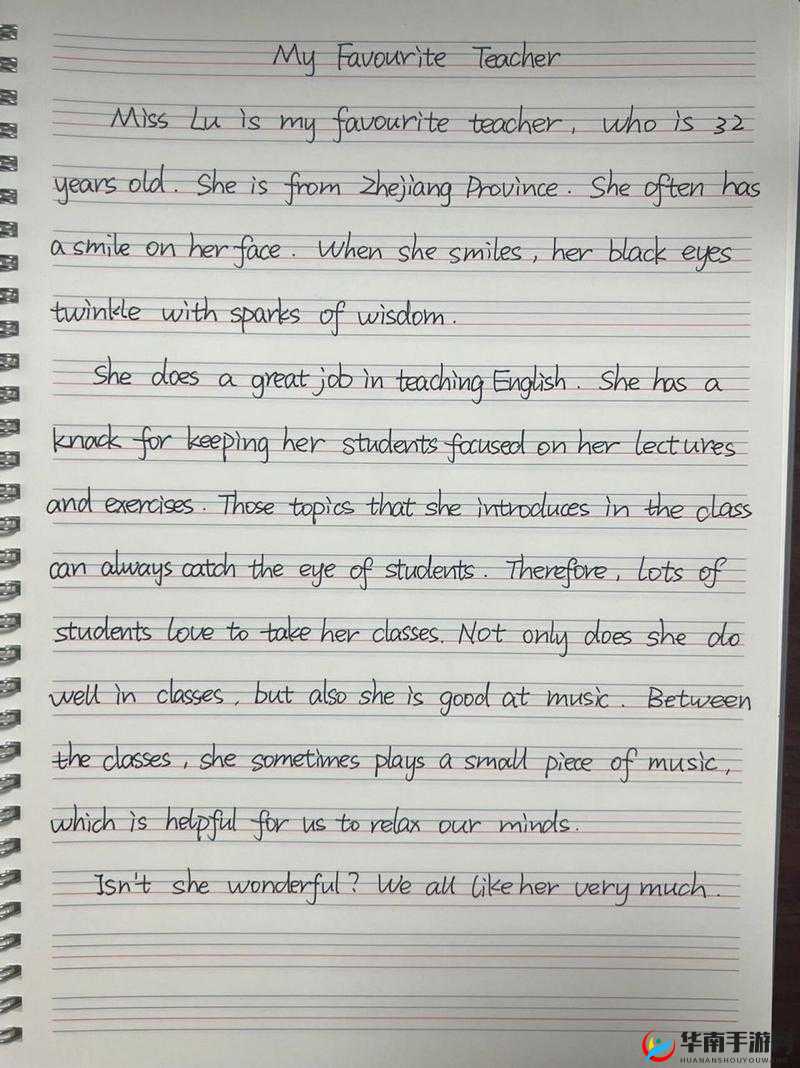 My Favourite Teacher
Miss Lu is my favourite teacher, who is 32
years old. She is from Zhejiang Province. She often has
a smile on her face. When she smiles, her black eyes
twinkle with sparks of wisdom.
She does a great job in teaching English. She has a
knack for keeping her students focused on her lectures
and exercises. Those topics that she introduces in the class
can always catch the eye of students. Therefore, lots of
students love to take her classes. Not only does she do
well in classes, but also she is good at music. Between
the classes, she sometimes plays a small piece of music,
which is helpful for us to relax our minds.
Isn't she wonderful? We all like her very much.
华南手游
HUANANSHOUYOUW